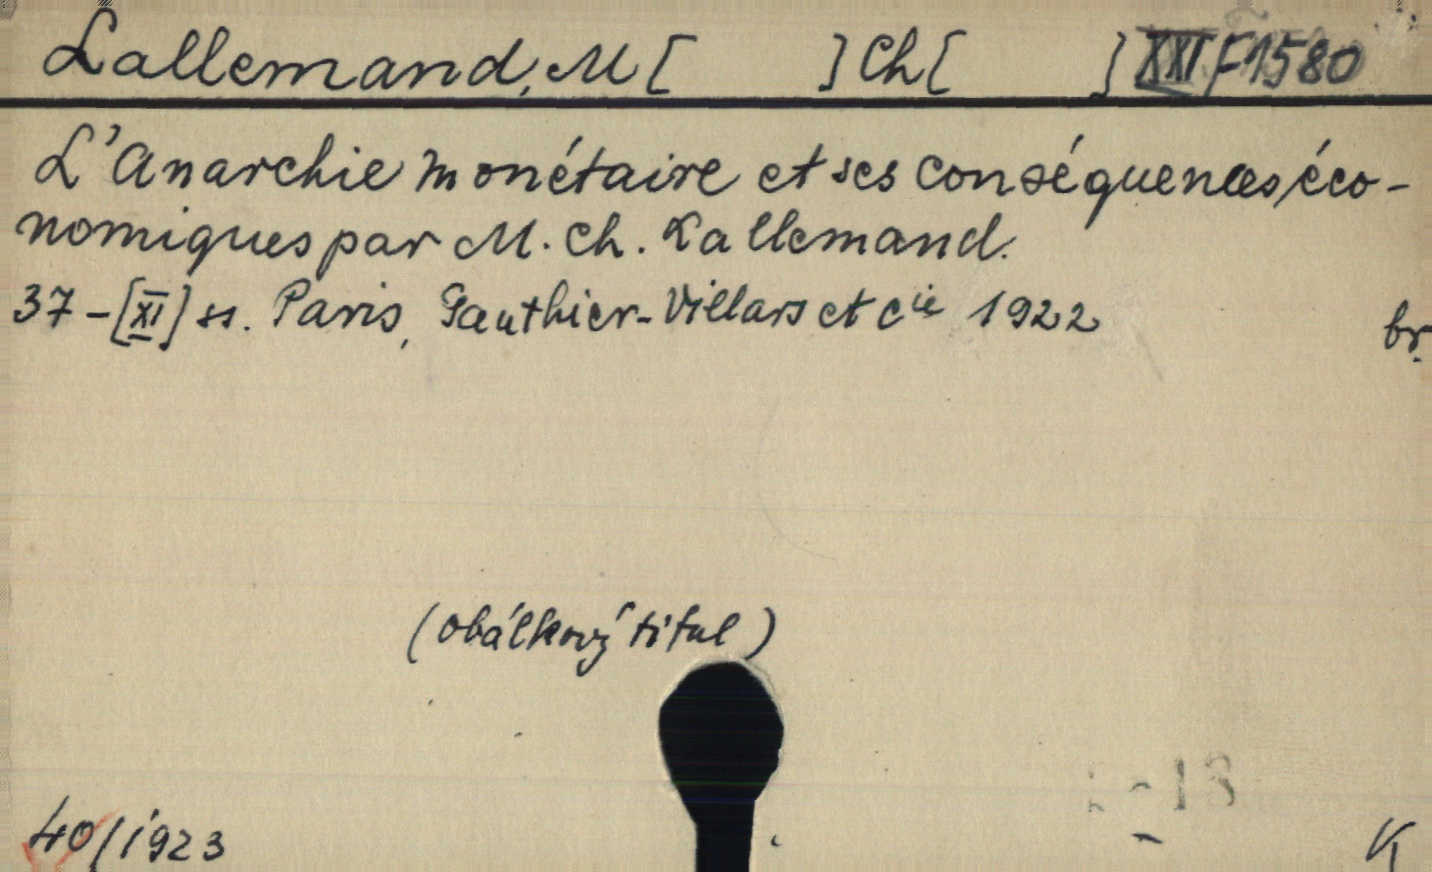 Lallemand, M [ ] Ch [ ] XXI F 1580
L'Anarchie monétaire et ses conséquences éco-
nomiques par M. Ch. Lallemand.
37-[XI] ss. Paris, Gauthier-Villars et Cie 1922 br.
(obálkový titul)
40/1923 K